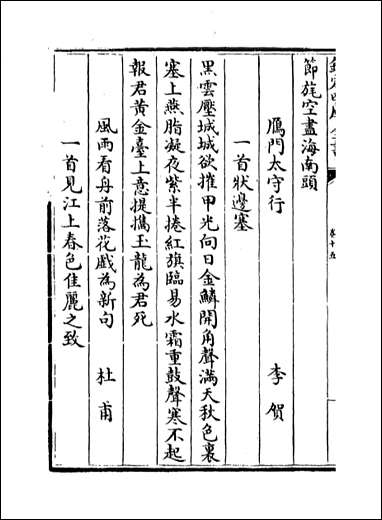 節旄空盡海南頭
鴈門太守行　李賀
一首狀邊塞
黑雲壓城城欲摧甲光向日金鱗開角聲滿天秋色裏
塞上燕脂凝夜紫半捲紅旗臨易水霜重鼓聲寒不起
報君黃金臺上意提攜玉龍為君死
風雨看舟前落花戲為新句　杜甫
一首見江上春色佳麗之致